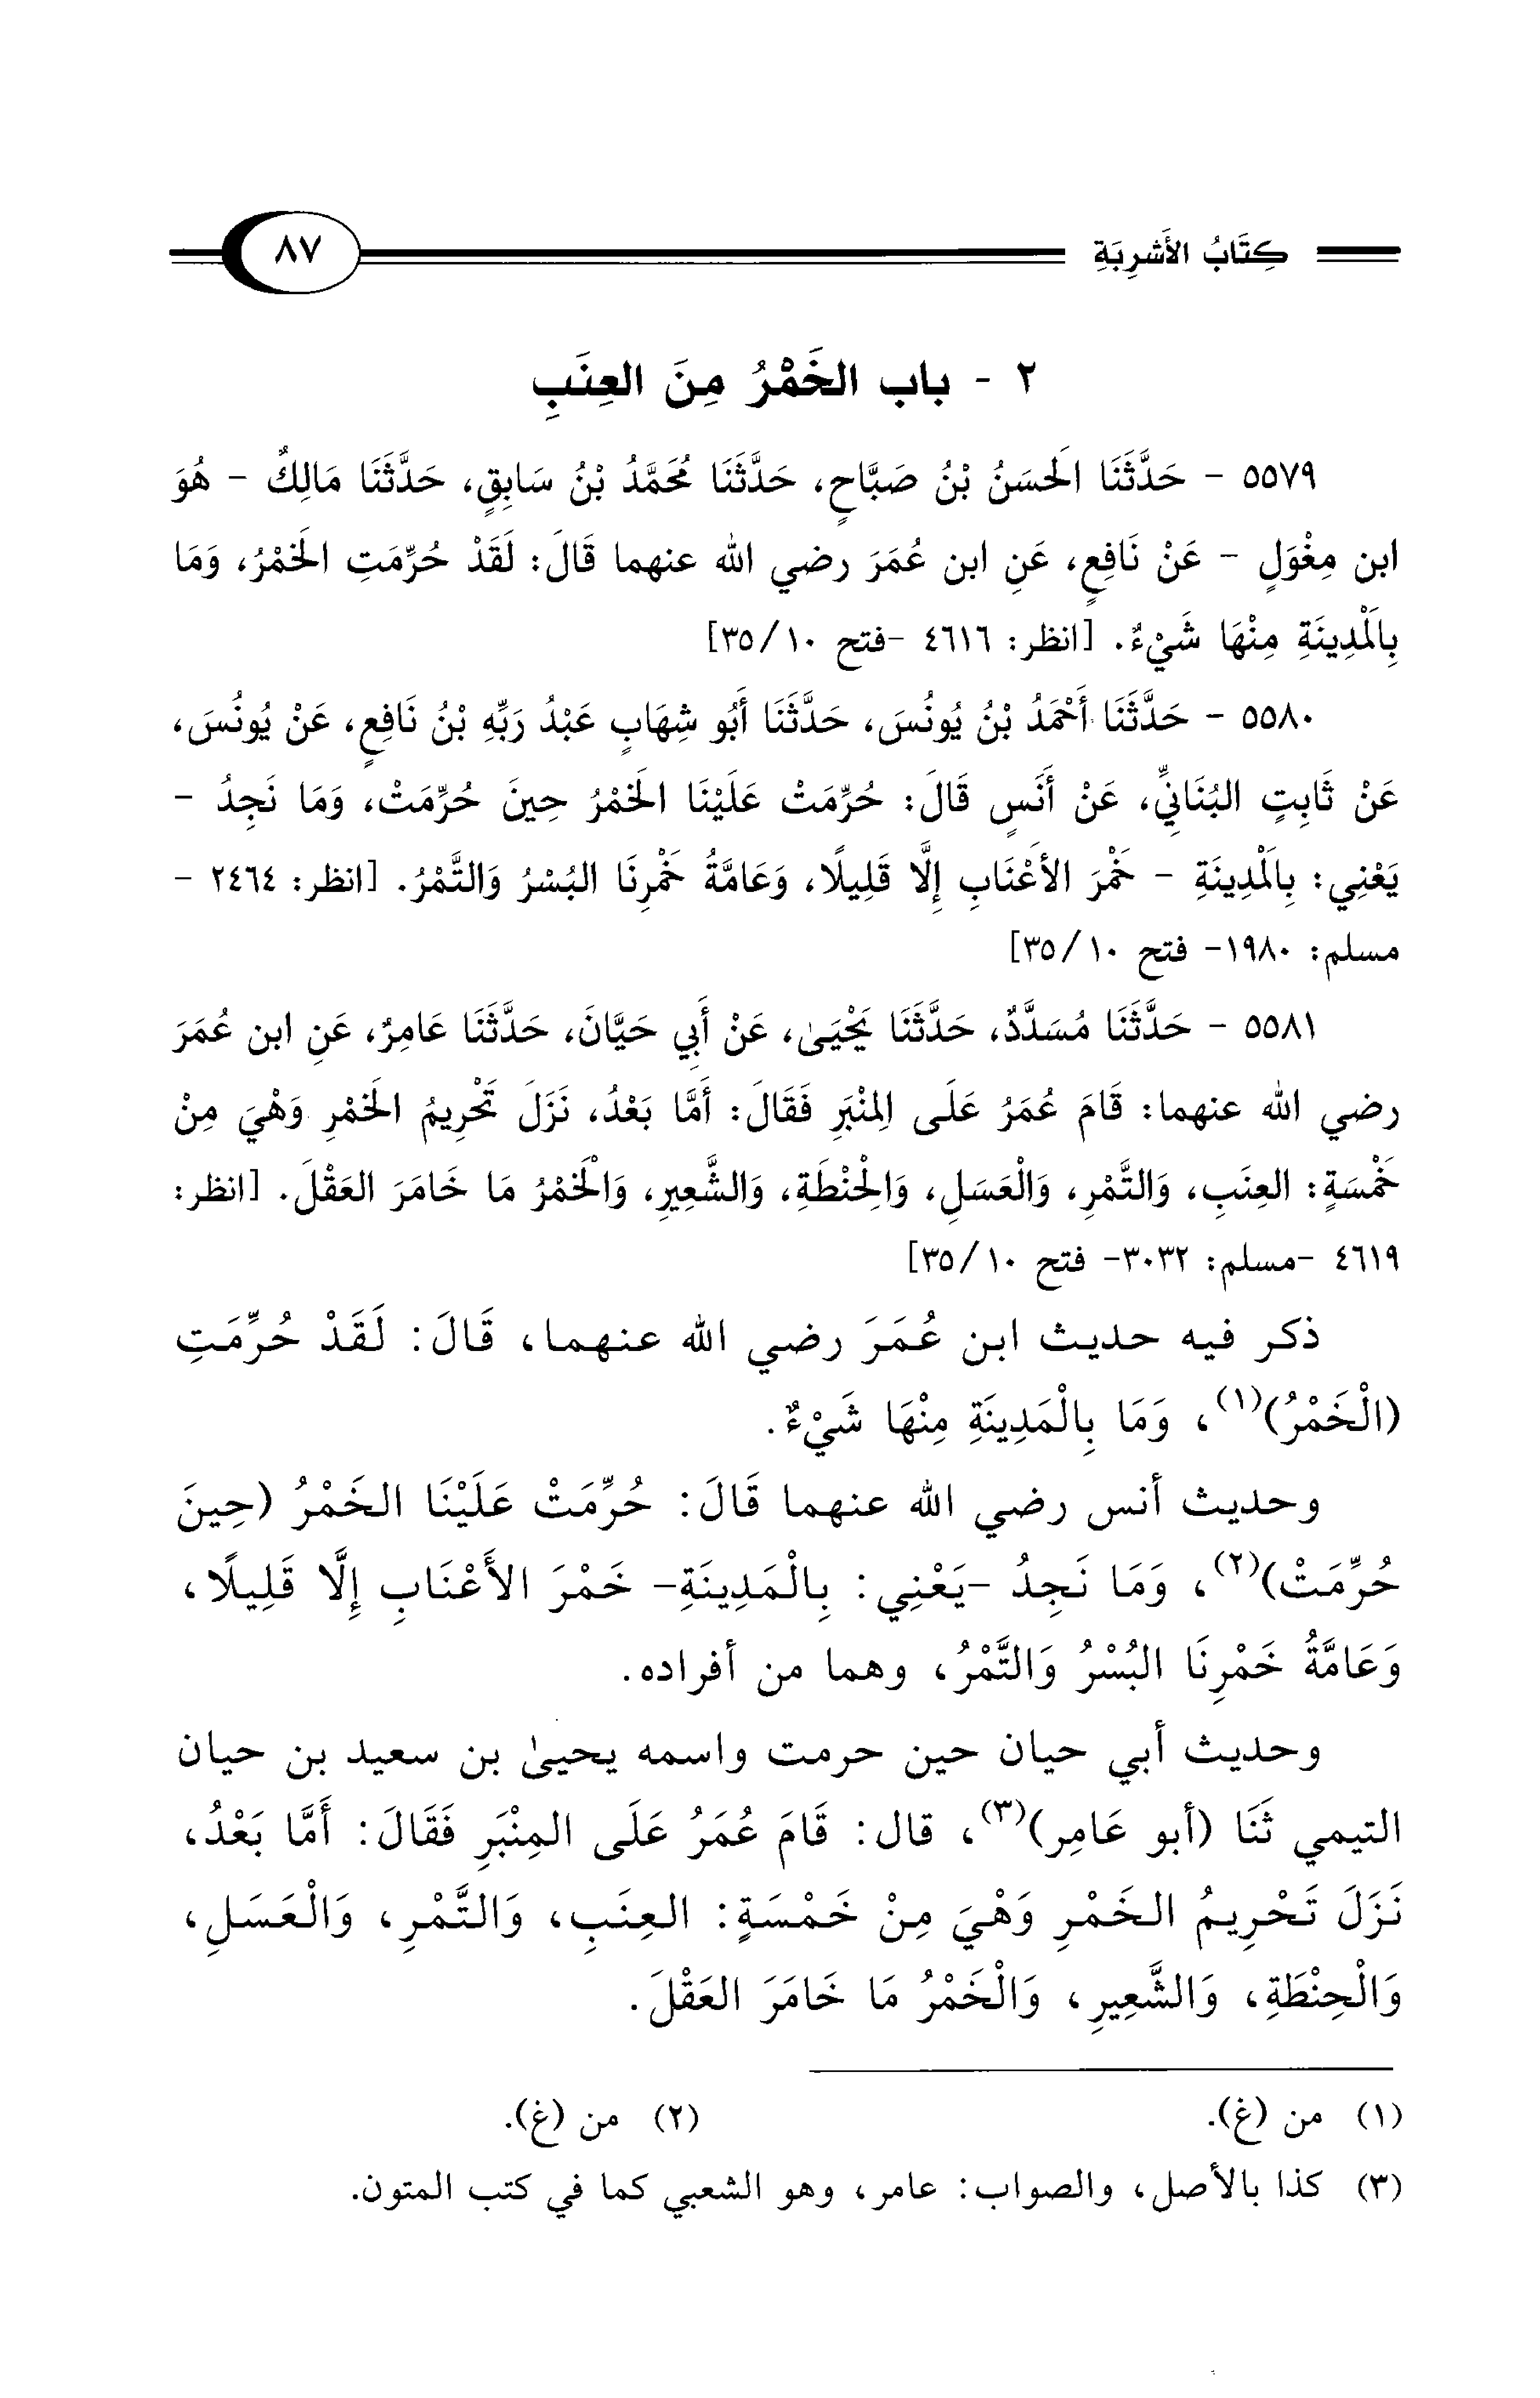 كِتَابُ الأَشرِبَةِ ٨٧
٢ - باب الخَمْرُ مِنَ العِنَبِ
٥٥٧٩ - حَدَّثَنَا الَحسَنُ بْنُ صَبَّاحٍ، حَدَّثَنَا مُحَمَّدُ بْنُ سَابِقٍ، حَدَّثَنَا مَالِكٌ - هُوَ
ابن مِغْوَلٍ - عَنْ نَافِعٍ، عَنِ ابن عُمَرَ رضي الله عنهما قَالَ: لَقَدْ حُرِّمَتِ الَخمْرُ، وَمَا
بِالْمَدِينَةِ مِنْهَا شَيْءٌ. [انظر: ٤٦١٦ -فتح ١٠/ ٣٥]
٥٥٨٠ - حَدَّثَنَا أَحْمَدُ بْنُ يُونُسَ، حَدَّثَنَا أَبُو شِهَابٍ عَبْدُ رَبِّهِ بْنُ نَافِعٍ، عَنْ يُونُسَ،
عَنْ ثَابِتٍ البُنَانِيِّ، عَنْ أَنَسٍ قَالَ: حُرِّمَتْ عَلَيْنَا الَخمْرُ حِينَ حُرِّمَتْ، وَمَا نَجِدُ -
يَعْنِي: بِالَمْدِينَةِ - خَمْرَ الأَعْنَابِ إِلَّا قَلِيلًا، وَعَامَّةُ خَمْرِنَا البُسْرُ وَالتَّمْرُ. [انظر: ٢٤٦٤ -
مسلم: ١٩٨٠- فتح ١٠/ ٣٥]
٥٥٨١ - حَدَّثَنَا مُسَدَّدٌ، حَدَّثَنَا يَحْيَىٰ، عَنْ أَبِي حَيَّانَ، حَدَّثَنَا عَامِرٌ، عَنِ ابن عُمَرَ
رضي الله عنهما: قَامَ عُمَرُ عَلَى المِنْبَرِ فَقَالَ: أَمَّا بَعْدُ، نَزَلَ تَحْرِيمُ الَخمْرِ وَهْيَ مِنْ
خَمْسَةٍ: العِنَبِ، وَالتَّمْرِ، وَالْعَسَلِ، وَالْحِنْطَةِ، وَالشَّعِيرِ، وَالْخَمْرُ مَا خَامَرَ العَقْلَ. [انظر:
٤٦١٩ -مسلم: ٣٠٣٢- فتح ١٠/ ٣٥]
ذكر فيه حديث ابن عُمَرَ رضي الله عنهما، قَالَ: لَقَدْ حُرِّمَتِ
(الْخَمْرُ)(١)، وَمَا بِالْمَدِينَةِ مِنْهَا شَيْءٌ.
وحديث أنس رضي الله عنهما قَالَ: حُرِّمَتْ عَلَيْنَا الخَمْرُ (حِينَ
حُرِّمَتْ)(٢)، وَمَا نَجِدُ -يَعْنِي: بِالْمَدِينَةِ- خَمْرَ الأَعْنَابِ إِلَّا قَلِيلًا،
وَعَامَّةُ خَمْرِنَا البُسْرُ وَالتَّمْرُ، وهما من أفراده.
وحديث أبي حيان حين حرمت واسمه يحيىٰ بن سعيد بن حيان
التيمي ثَنَا (أبو عَامِر)(٣)، قال: قَامَ عُمَرُ عَلَى المِنْبَرِ فَقَالَ: أَمَّا بَعْدُ،
نَزَلَ تَحْرِيمُ الخَمْرِ وَهْيَ مِنْ خَمْسَةٍ: العِنَبِ، وَالتَّمْرِ، وَالْعَسَلِ،
وَالْحِنْطَةِ، وَالشَّعِيرِ، وَالْخَمْرُ مَا خَامَرَ العَقْلَ.
(١) من (غ). (٢) من (غ).
(٣) كذا بالأصل، والصواب: عامر، وهو الشعبي كما في كتب المتون.